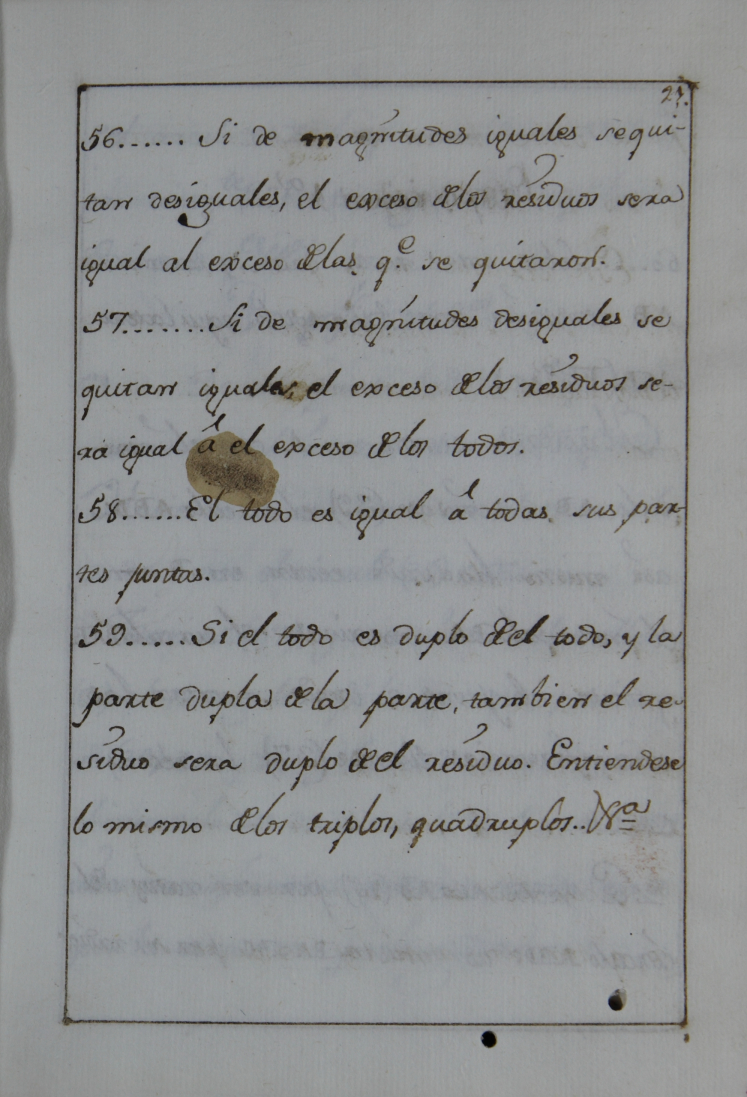 23.
56...... Si de magnitudes iguales se qui-
tan desiguales, el exceso delos residuos sera
igual al exceso delas q.e se quitaron.
57....... Si de magnitudes desiguales se
quitan iguales, el exceso delos residuos se-
ra igual á el exceso delos todos.
58...... El todo es igual á todas sus par-
tes juntas.
59..... Si el todo es duplo del todo, y la
parte dupla dela parte, tambien el re-
siduo sera duplo del residuo. Entiendese
lo mismo delos triplos, quadruplos..